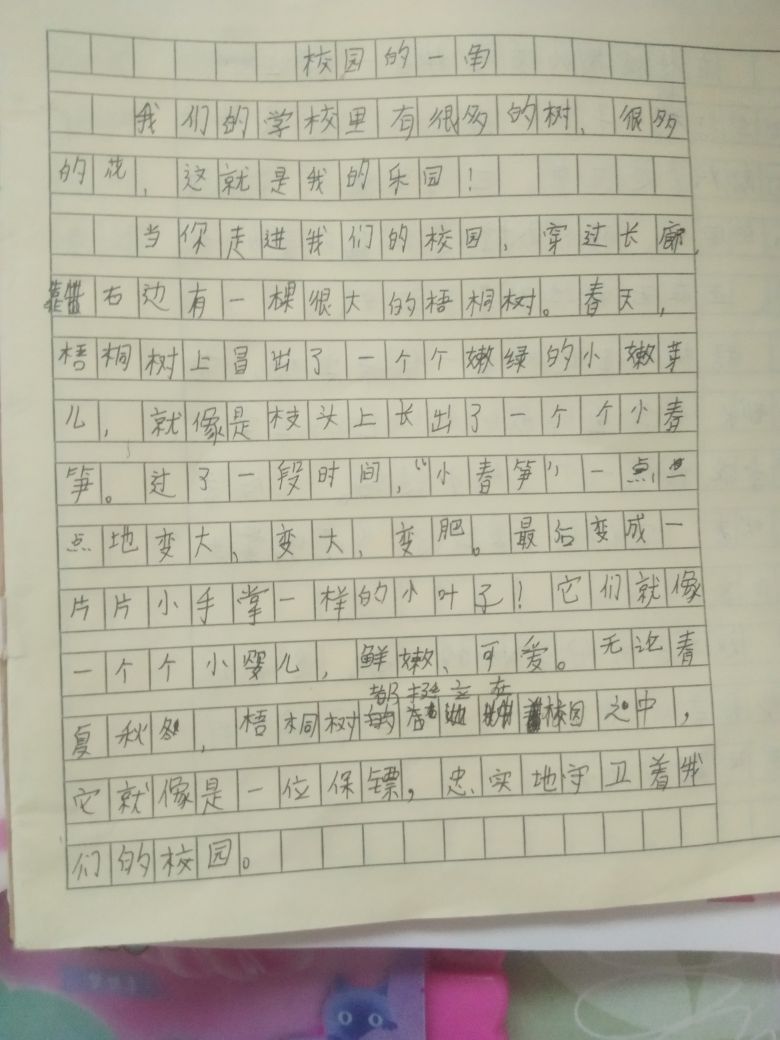 校园的一角
我们的学校里有很多的树、很多
的花，这就是我的乐园！
当你走进我们的校园，穿过长廊，
靠右边有一棵很大的梧桐树。春天，
梧桐树上冒出了一个个嫩绿的小嫩芽
儿，就像是枝头上长出了一个个小春
笋。过了一段时间，“小春笋”一点一
点地变大、变大、变肥。最后变成一
片片小手掌一样的小叶子！它们就像
一个个小婴儿，鲜嫩、可爱。无论春
夏秋冬，梧桐树都挺立在校园之中，
它就像是一位保镖，忠实地守卫着我
们的校园。